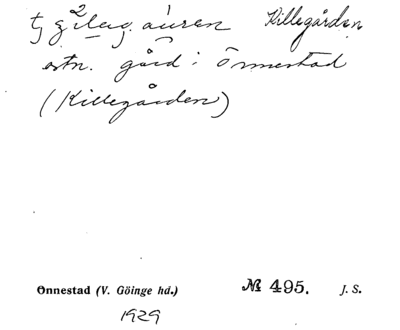 Killegården
estn. gård i Önnestad
(Killegården)
Önnestad (V. Göinge hd.) № 495. J. S.
1929